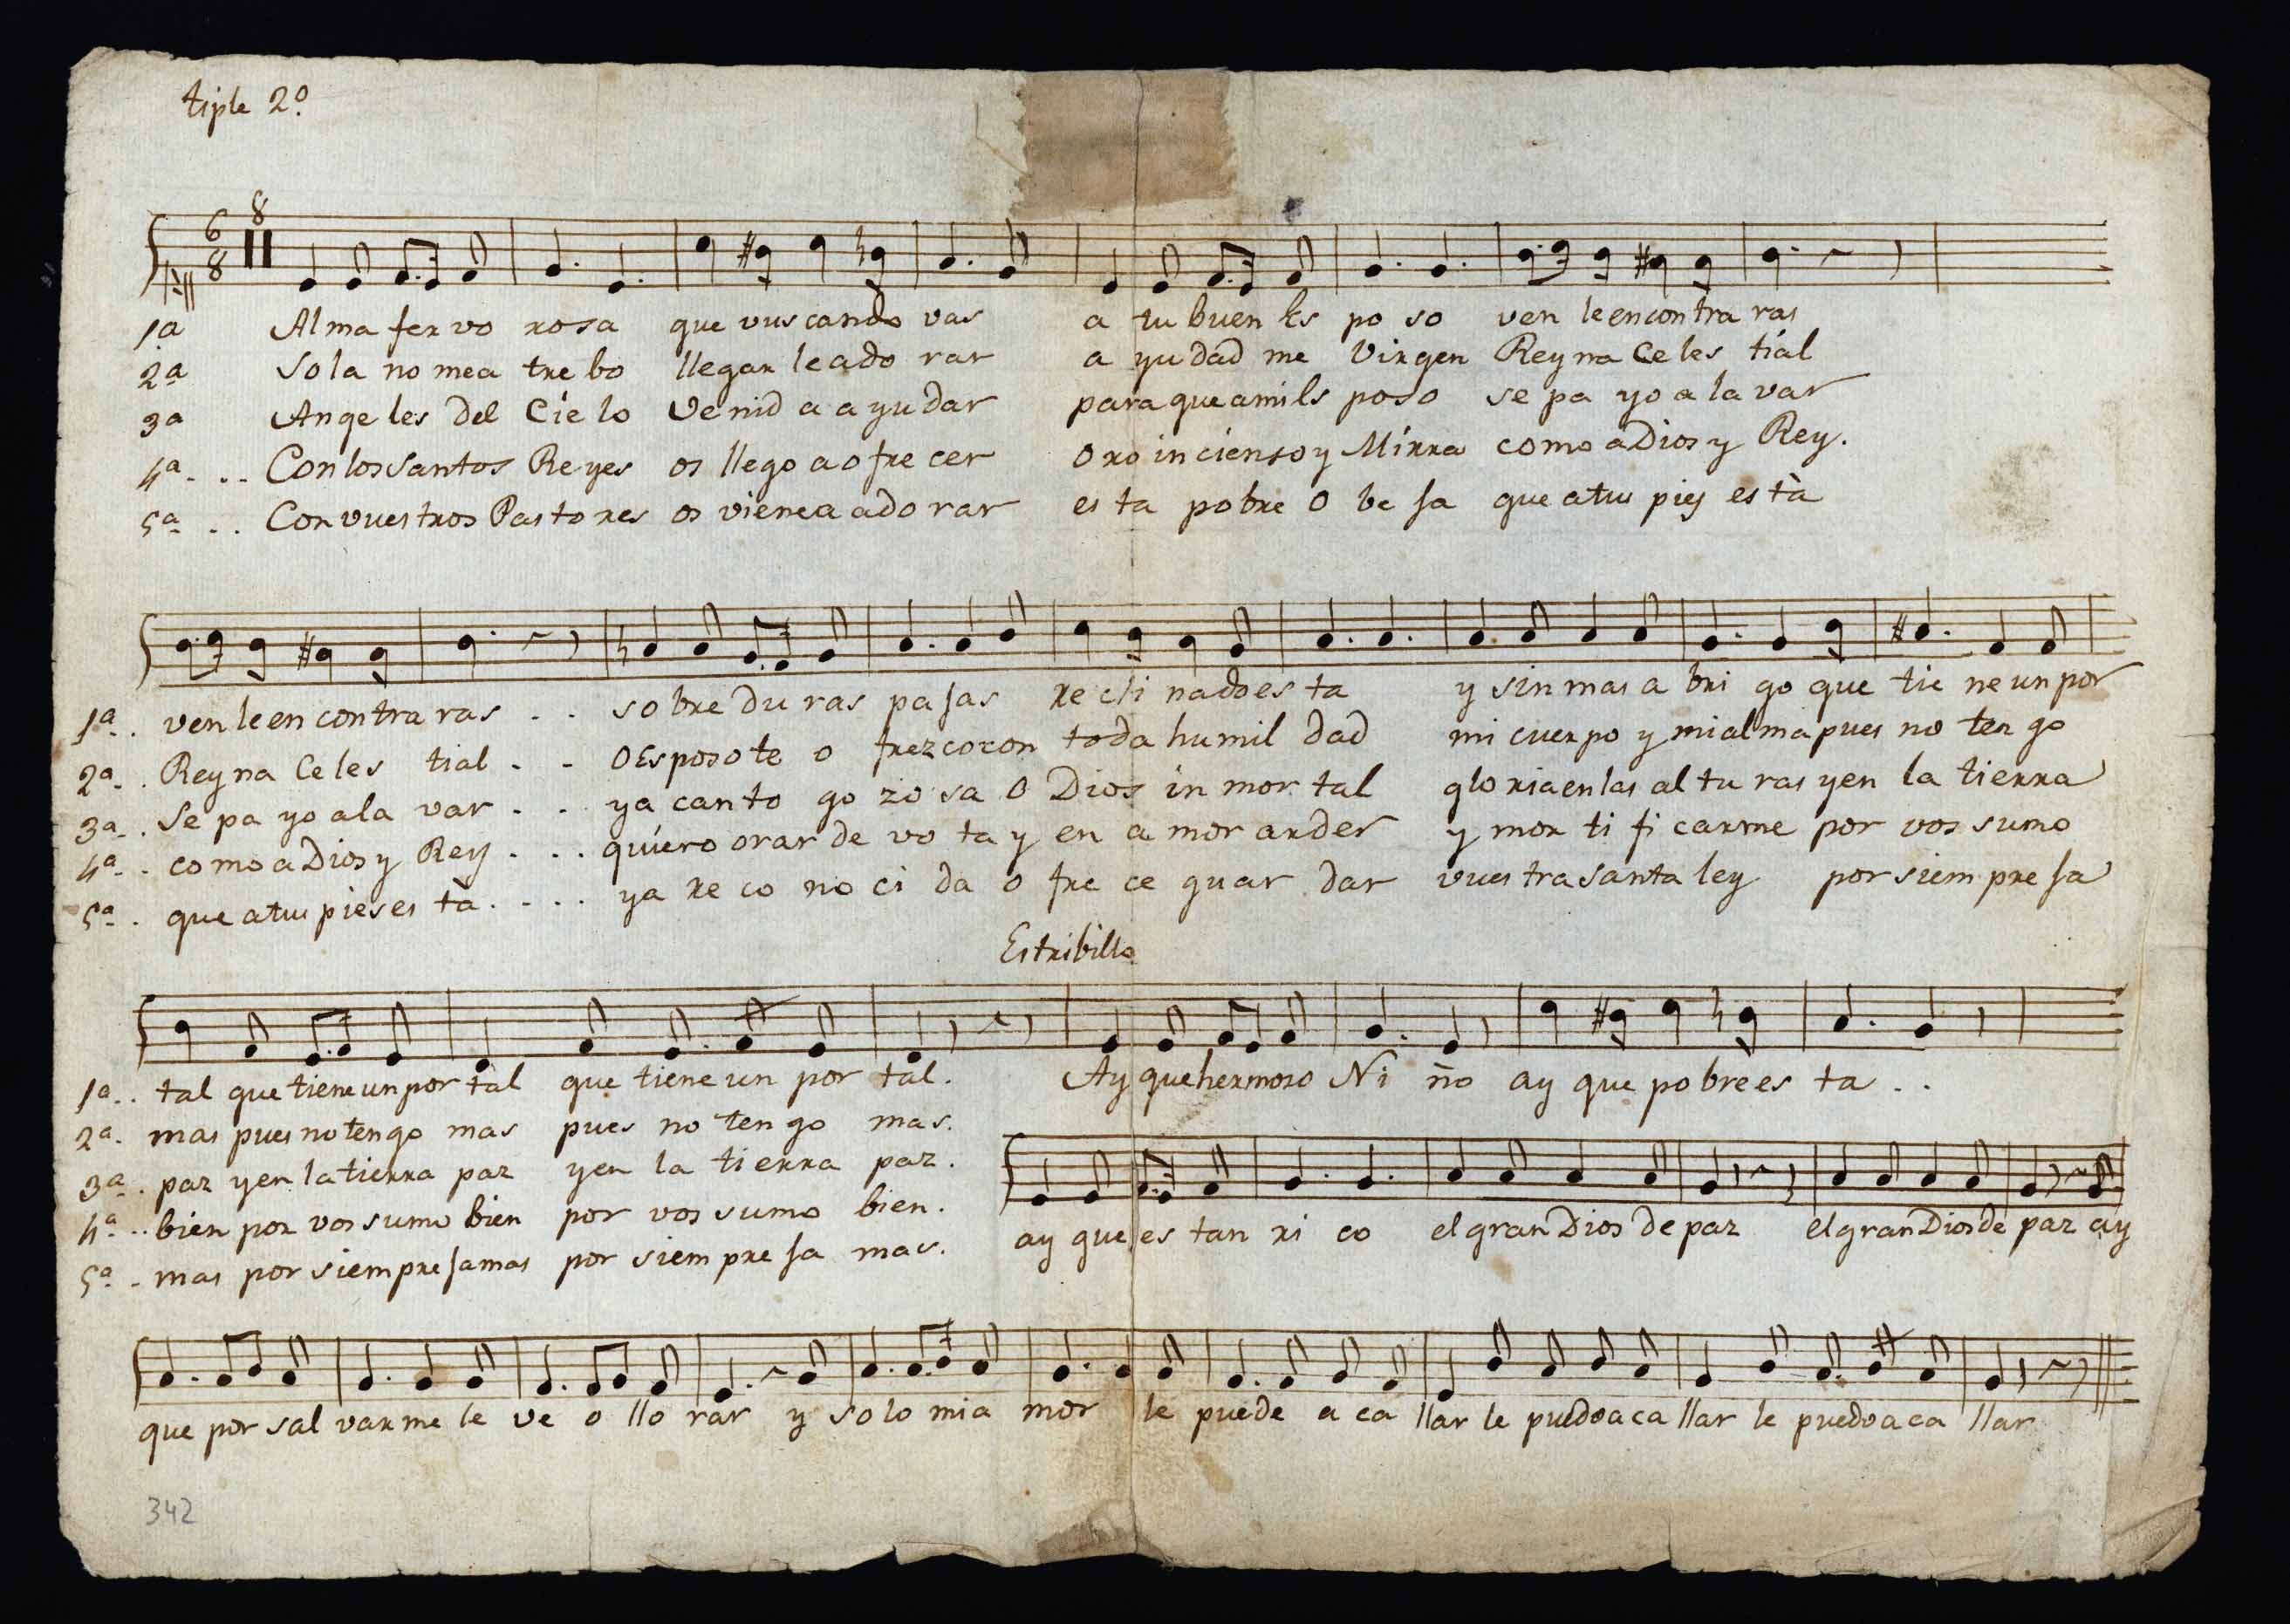 tiple 2º
6 8
8
1ª Alma fervo rosa que vuscando vas a tu buen Es po so ven leencontra ras
2ª Sola no mea tre bo llegar leado rar a yudad me Virgen Reyna Celes tial
3ª Angeles del Cielo Venid a ayudar para que amiEs poso se pa yo a la var
4ª... Con los Santos Reyes os llego a ofre cer oro incienso y Mirra como aDios y Rey.
5ª.. Con vuestros Pastores os vienea ado rar es ta pobre O be ja que atus pies està
1ª.. ven leen contra ras .. sobre du ras pajas recli nadoes ta y sin mas a bri go que tie ne un por
2ª.. Reyna Celes tial .. O Esposo te o frezco con toda humil dad mi cuerpo y mi alma pues no ten go
3ª.. Se pa yo ala var .. ya canto go zo sa O Dios in mor tal gloria en las al tu ras yen la tierra
4ª.. como aDios y Rey ... quiero orar de vo ta y en a mor arder y mor ti fi carme por vos sumo
5ª.. que atus pies es tà .... ya re co no ci da o fre ce guar dar vues tra santa ley por siem pre ja
Estribillo
1ª.. tal que tiene un por tàl que tiene un por tal. Ay que hermoso Ni ño ay que pobre es ta ..
2ª. mas pues no tengo mas pues no ten go mas.
3ª.. paz yen la tierra paz yen la tierra paz.
4ª.. bien por vos sumo bien por vos sumo bien.
ay que es tan ri co el gran Dios de paz el gran Dios de paz ay
5ª.. mas por siempre jamas por siem pre ja mas.
que por sal varme le ve o llo rar y solo mi a mor le puede a ca llar le puedoaca llar le puedoaca llar
342